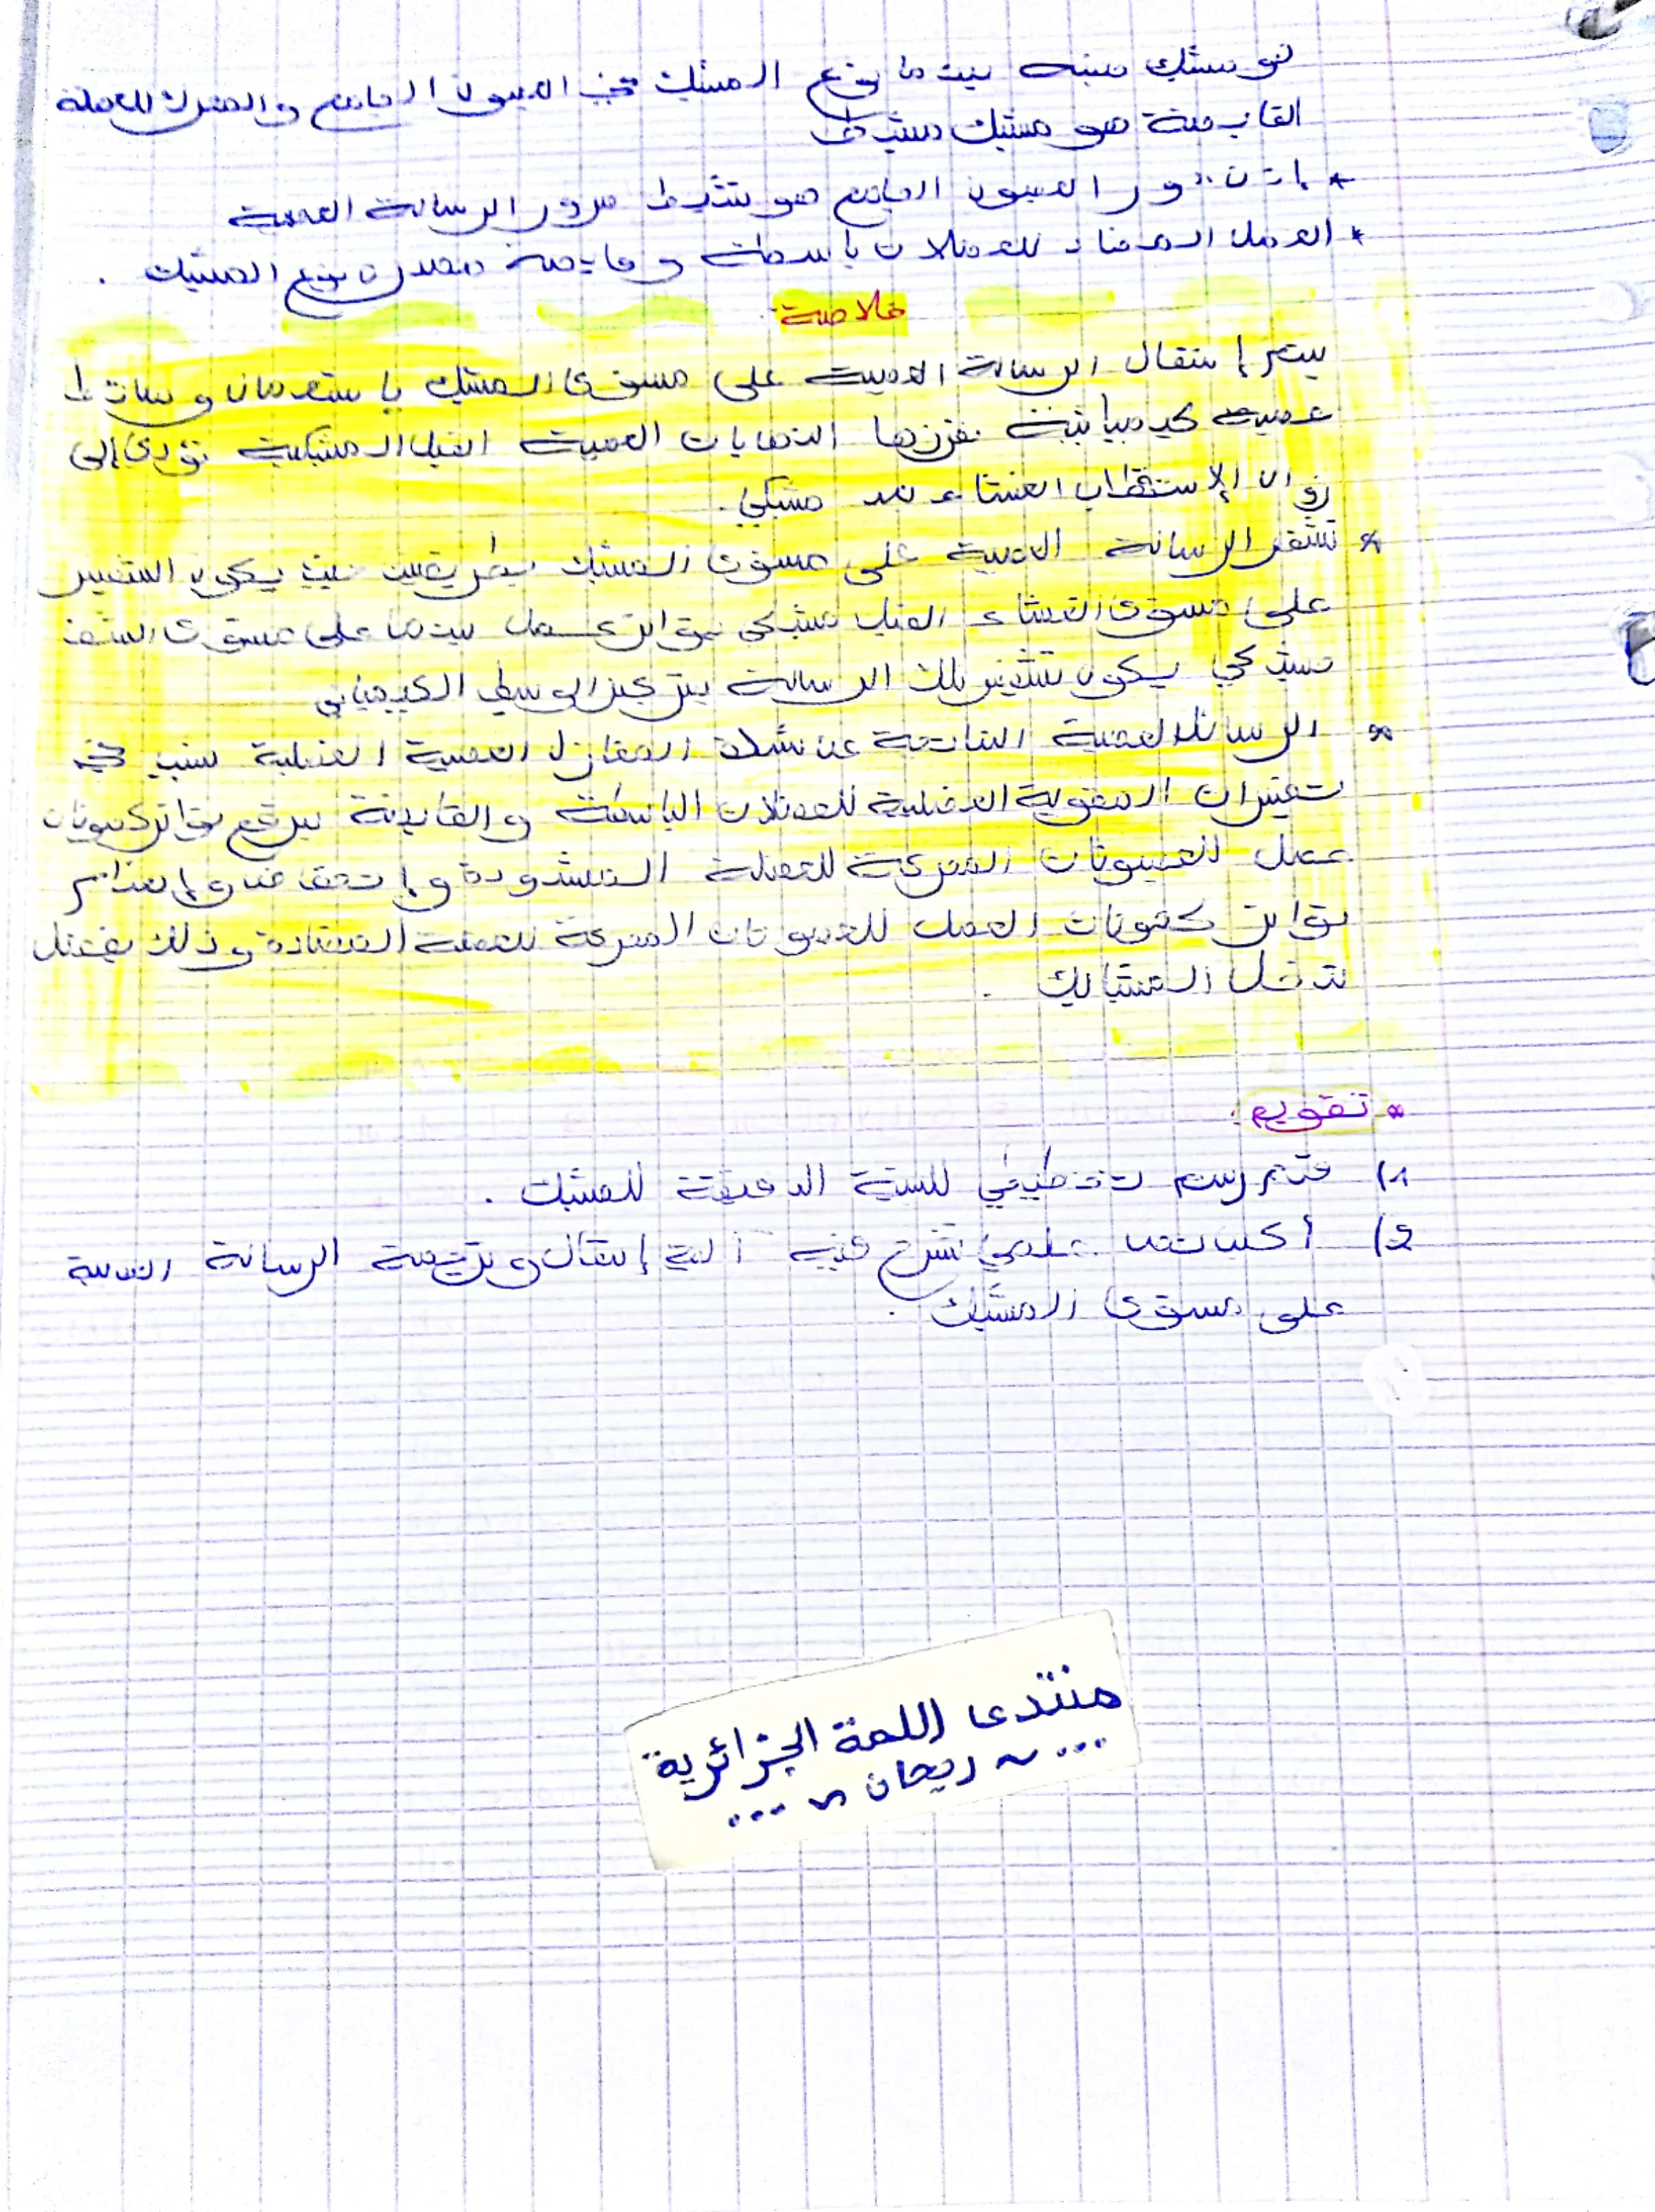 هو مشبك منبه بينما نوع المشبك بين العصبون الجامع والمحرك للعضلة
القابضة هو مشبك مثبط
* إذن دور العصبون الجامع هو تثبيط مرور الرسالة العصبية
* العمل المضاد للعضلات باسطة وقابضة مصدره نوع المشبك .
خلاصة
يتم إنتقال الرسالة العصبية على مستوى المشبك باستعمال وسائط
عصبية كيميائية تفرزها النهايات العصبية القبل المشبكية تؤدي إلى
زوال الإستقطاب الغشاء بعد مشبكي .
* تشفر الرسالة العصبية على مستوى المشبك بطريقتين حيث يكون التشفير
على مستوى الغشاء القبل مشبكي بتواتر كمون عمل بينما على مستوى الشق
مشبكي يكون تشفير تلك الرسالة بتركيز الوسيط الكيميائي
* الرسائل العصبية الناتجة عن نشاط المغازل العصبية العضلية تسبب في
تغيرات المقوية العضلية للعضلات الباسطة والقابضة برفع تواتر كمونات
عمل للعصبونات المحركة للعضلة المشدودة وإنخفاض وإنعدام
تواتر كمونات العمل للعصبونات المحركة للعضلة المضادة وذلك بفضل
تدخل المشابك .
* تقويم :
1) قدم رسم تخطيطي للبنية الدقيقة للمشبك .
2) أكتب نص علمي تشرح فيه آلية إنتقال وترجمة الرسالة العصبية
على مستوى المشبك .
منتدى اللمة الجزائرية
... ~ ريحان ~ ...